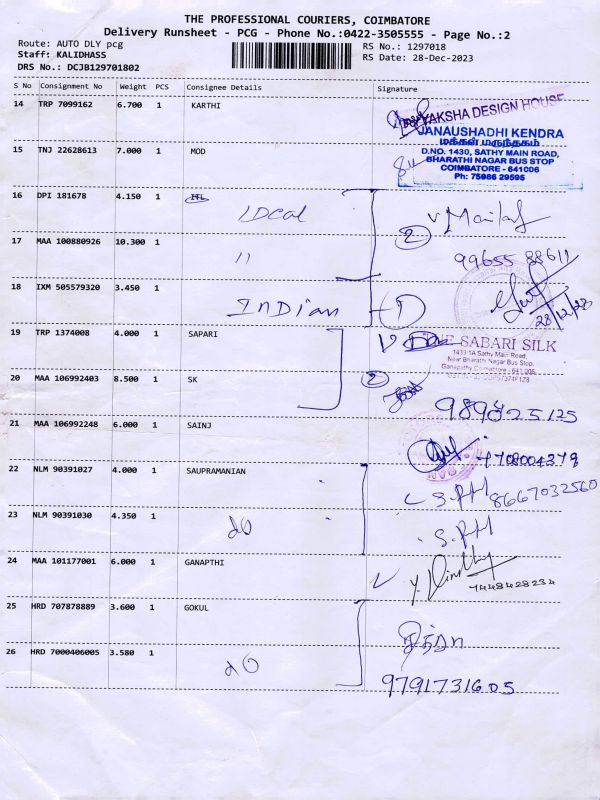 THE PROFESSIONAL COURIERS, COIMBATORE
Delivery Runsheet - PCG - Phone No.:0422-3505555 - Page No.:2
Route: AUTO DLY pcg RS No.: 1297018
Staff: KALIDHASS RS Date: 28-Dec-2023
DRS No.: DCJB129701802
S No Consignment No Weight PCS Consignee Details Signature
14 TRP 7099162 6.700 1 KARTHI
YAKSHA DESIGN HOUSE
JANAUSHADHI KENDRA
மக்கள் மருந்தகம்
15 TNJ 22628613 7.000 1 MOD
D.NO. 1430, SATHY MAIN ROAD,
BHARATHI NAGAR BUS STOP
COIMBATORE - 641006
Ph: 75986 29595
16 DPI 181678 4.150 1
IDCal
2
17 MAA 100880926 10.300 1 11
99655 88611
18 IXM 505579320 3.450 1
INDIan 1
28/12/23
19 TRP 1374008 4.000 1 SAPARI
THE SABARI SILK
1439 1A Sathy Main Road,
Near Bharathi Nagar Bus Stop,
Ganapathy Coimbatore - 641 006
20 MAA 106992403 8.500 1 SK 2
9894225125
21 MAA 106992248 6.000 1 SAINJ
9708004379
22 NLM 90391027 4.000 1 SAUPRAMANIAN
8667032560
23 NLM 90391030 4.350 1
do
24 MAA 101177001 6.000 1 GANAPTHI
7448428234
25 HRD 707878889 3.600 1 GOKUL
சித்ரா
26 HRD 7000406005 3.580 1
do
9791731605